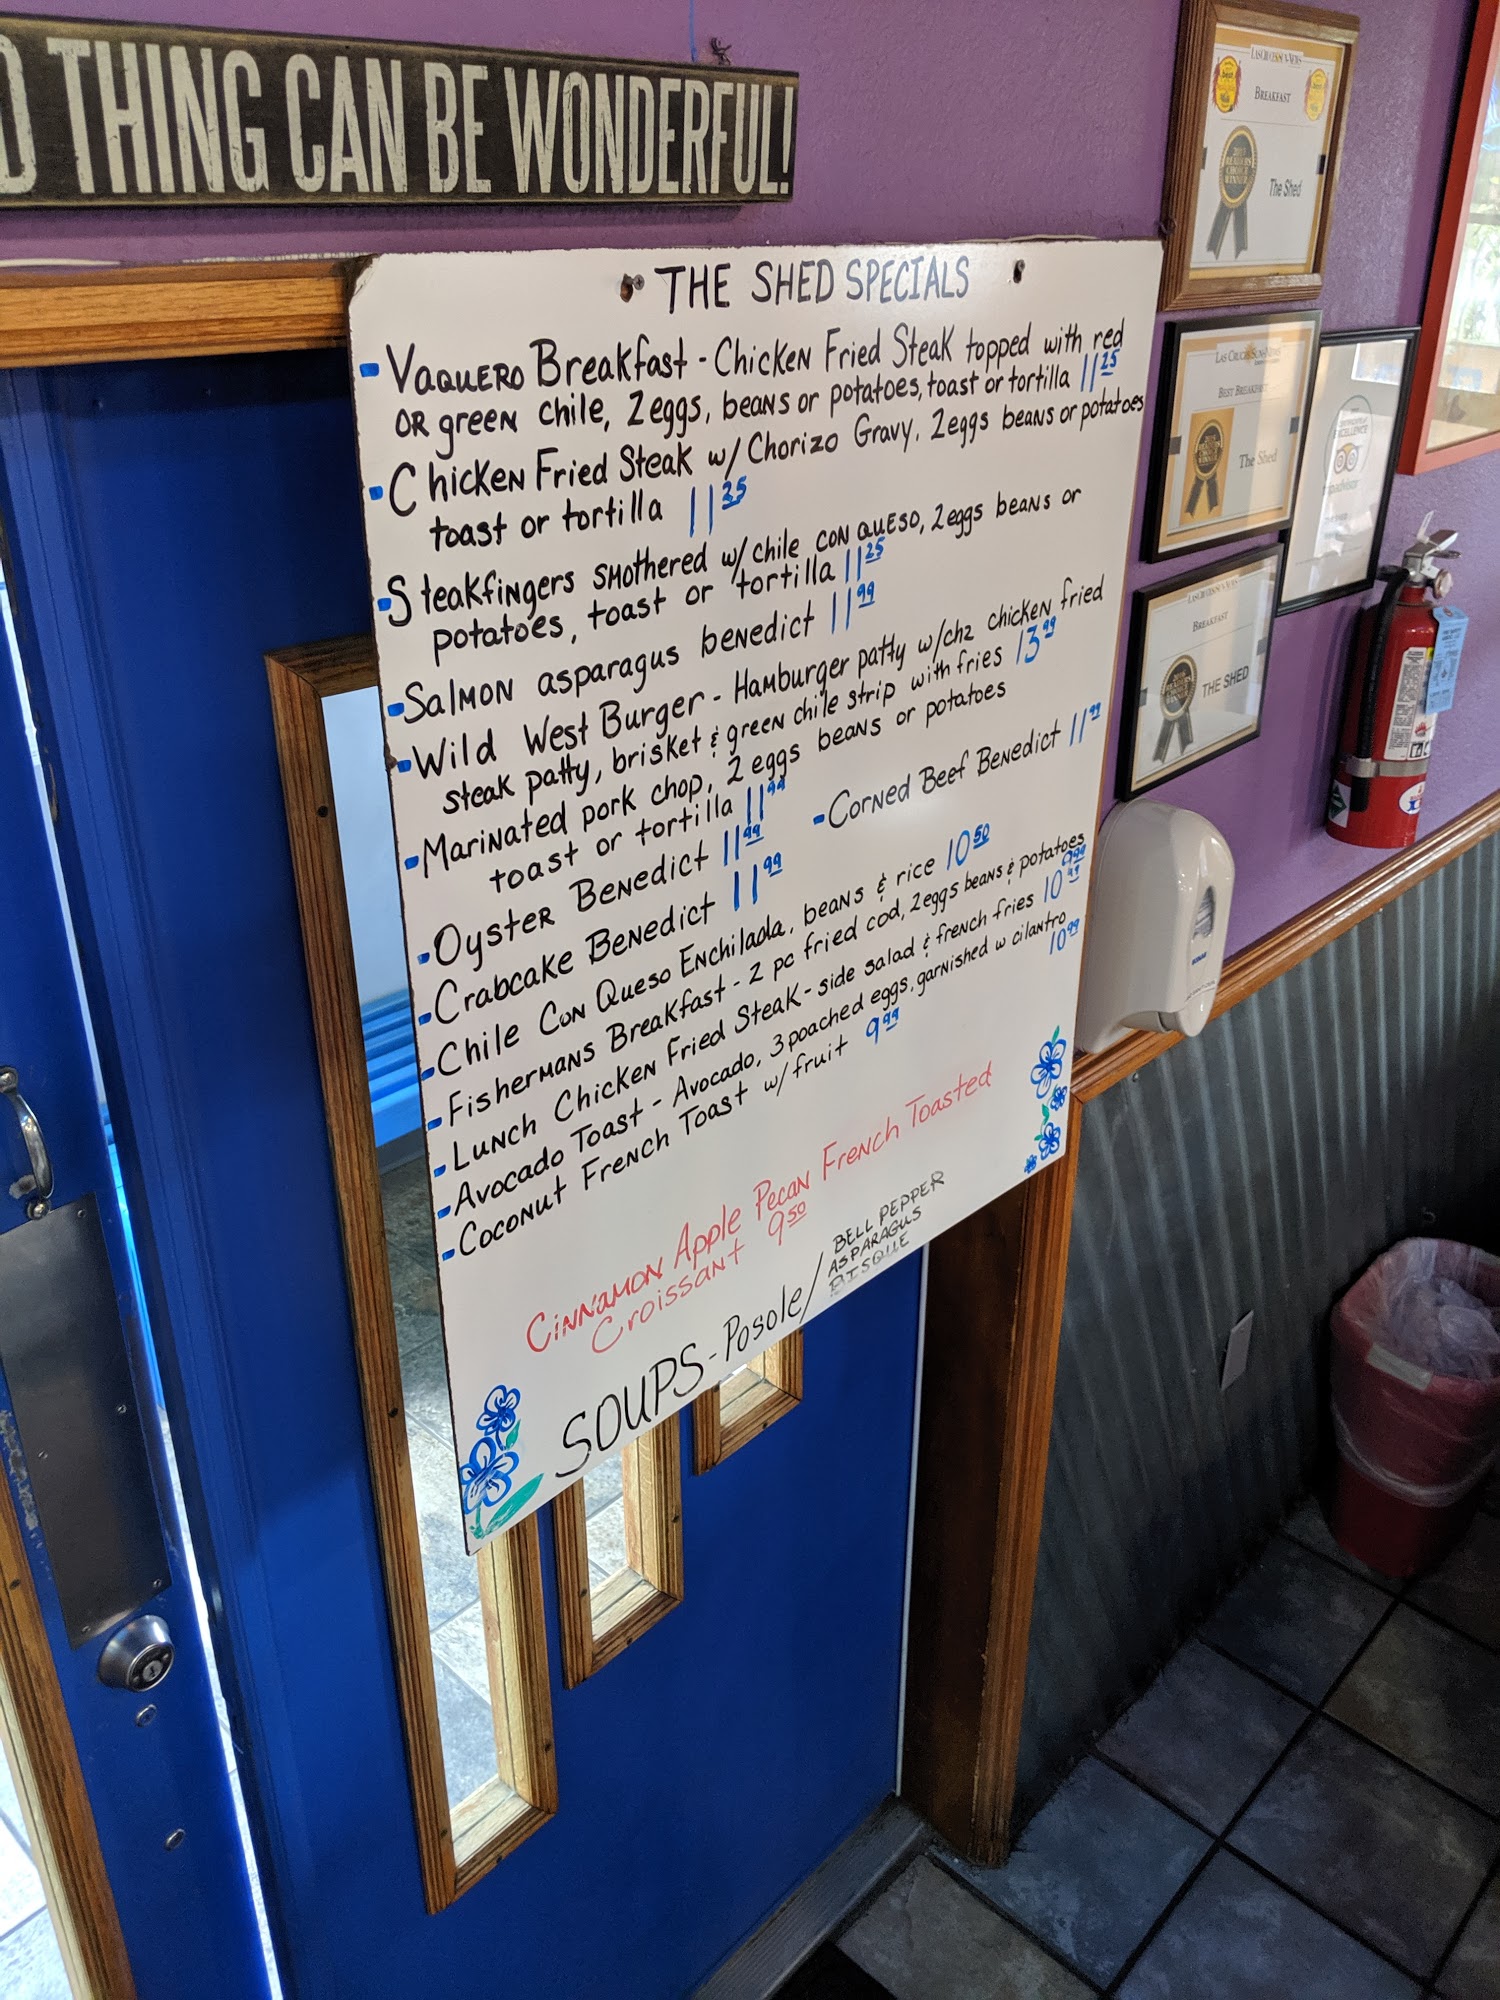 D THING CAN BE WONDERFUL!
THE SHED SPECIALS
- VAQUERO Breakfast - Chicken Fried Steak topped with red
OR green chile, 2 eggs, beans or potatoes, toast or tortilla 11 25
- Chicken Fried Steak w/ Chorizo Gravy, 2 eggs beans or potatoes
toast or tortilla 11 25
- Steakfingers smothered w/ chile con queso, 2 eggs beans or
potatoes, toast or tortilla 11 25
- Salmon asparagus benedict 11 99
- Wild West Burger - Hamburger patty w/ chz chicken fried
steak patty, brisket & green chile strip with fries 13 99
- Marinated pork chop, 2 eggs beans or potatoes
toast or tortilla 11 99
- Oyster Benedict 11 99
- Corned Beef Benedict 11 99
- Crabcake Benedict 11 99
- Chile Con Queso Enchilada, beans & rice 10 50
- Fishermans Breakfast - 2 pc fried cod, 2 eggs beans & potatoes
- Lunch Chicken Fried Steak - side salad & french fries 10 99
- Avocado Toast - Avocado, 3 poached eggs, garnished w cilantro
10 99
- Coconut French Toast w/ fruit 9 99
Cinnamon Apple Pecan French Toasted
Croissant 9 50
SOUPS - Posole/ BELL PEPPER
ASPARAGUS
BISQUE
LAS CRUCES SUN-NEWS
BREAKFAST
READERS
CHOICE
WINNER
The Shed
LAS CRUCES SUN-NEWS
BEST BREAKFAST
The Shed
EXCELLENCE
tripadvisor
LAS CRUCES SUN-NEWS
BREAKFAST
THE SHED